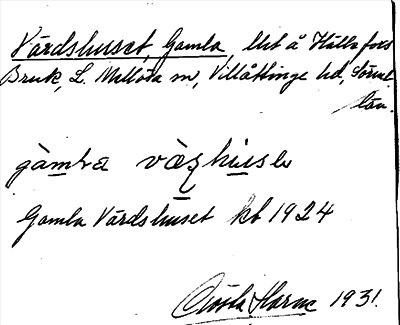 Värdshuset, Gamla, lht å Hälleforss
Bruk, L. Mellösa sn, Villåttinge hd, Söderml
län.
gàmla væ̀ʂhusə
Gamla Värdshuset kb 1924
Gösta Harne 1931.